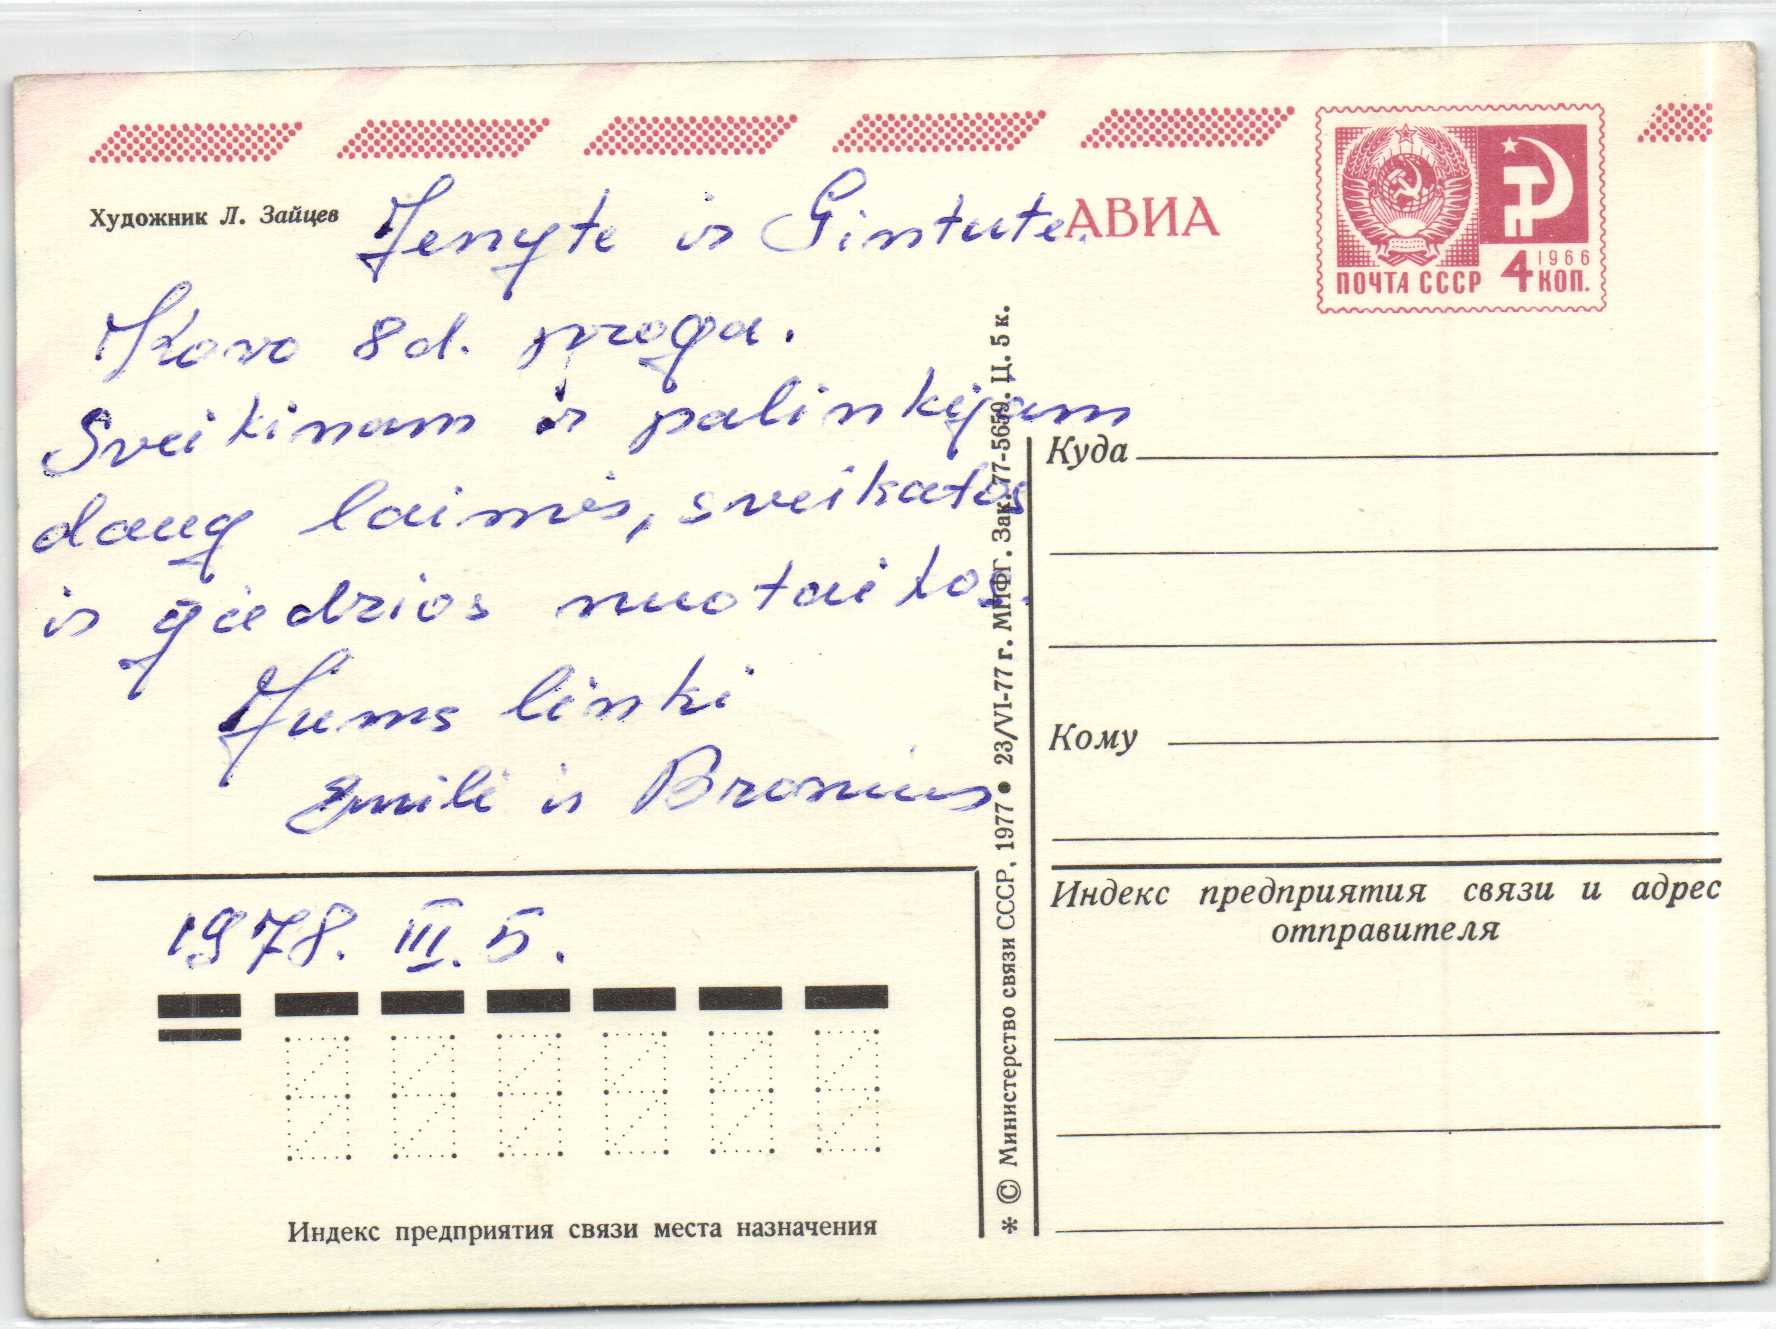 Художник Л. Зайцев
АВИА
ПОЧТА СССР 4 КОП.
1966
Jenyte ir Gintute.
Kovo 8d. proga.
Sveikinam ir palinkėjam
daug laimės, sveikatos
ir giedrios nuotaikos.
Jums linki
Emilė ir Bronius
1978. III. 5.
Индекс предприятия связи места назначения
* © Министерство связи СССР, 1977 ● 23/VI-77 г. МПФГ. Зак. 77-5659. Ц. 5 к.
Куда
Кому
Индекс предприятия связи и адрес
отправителя